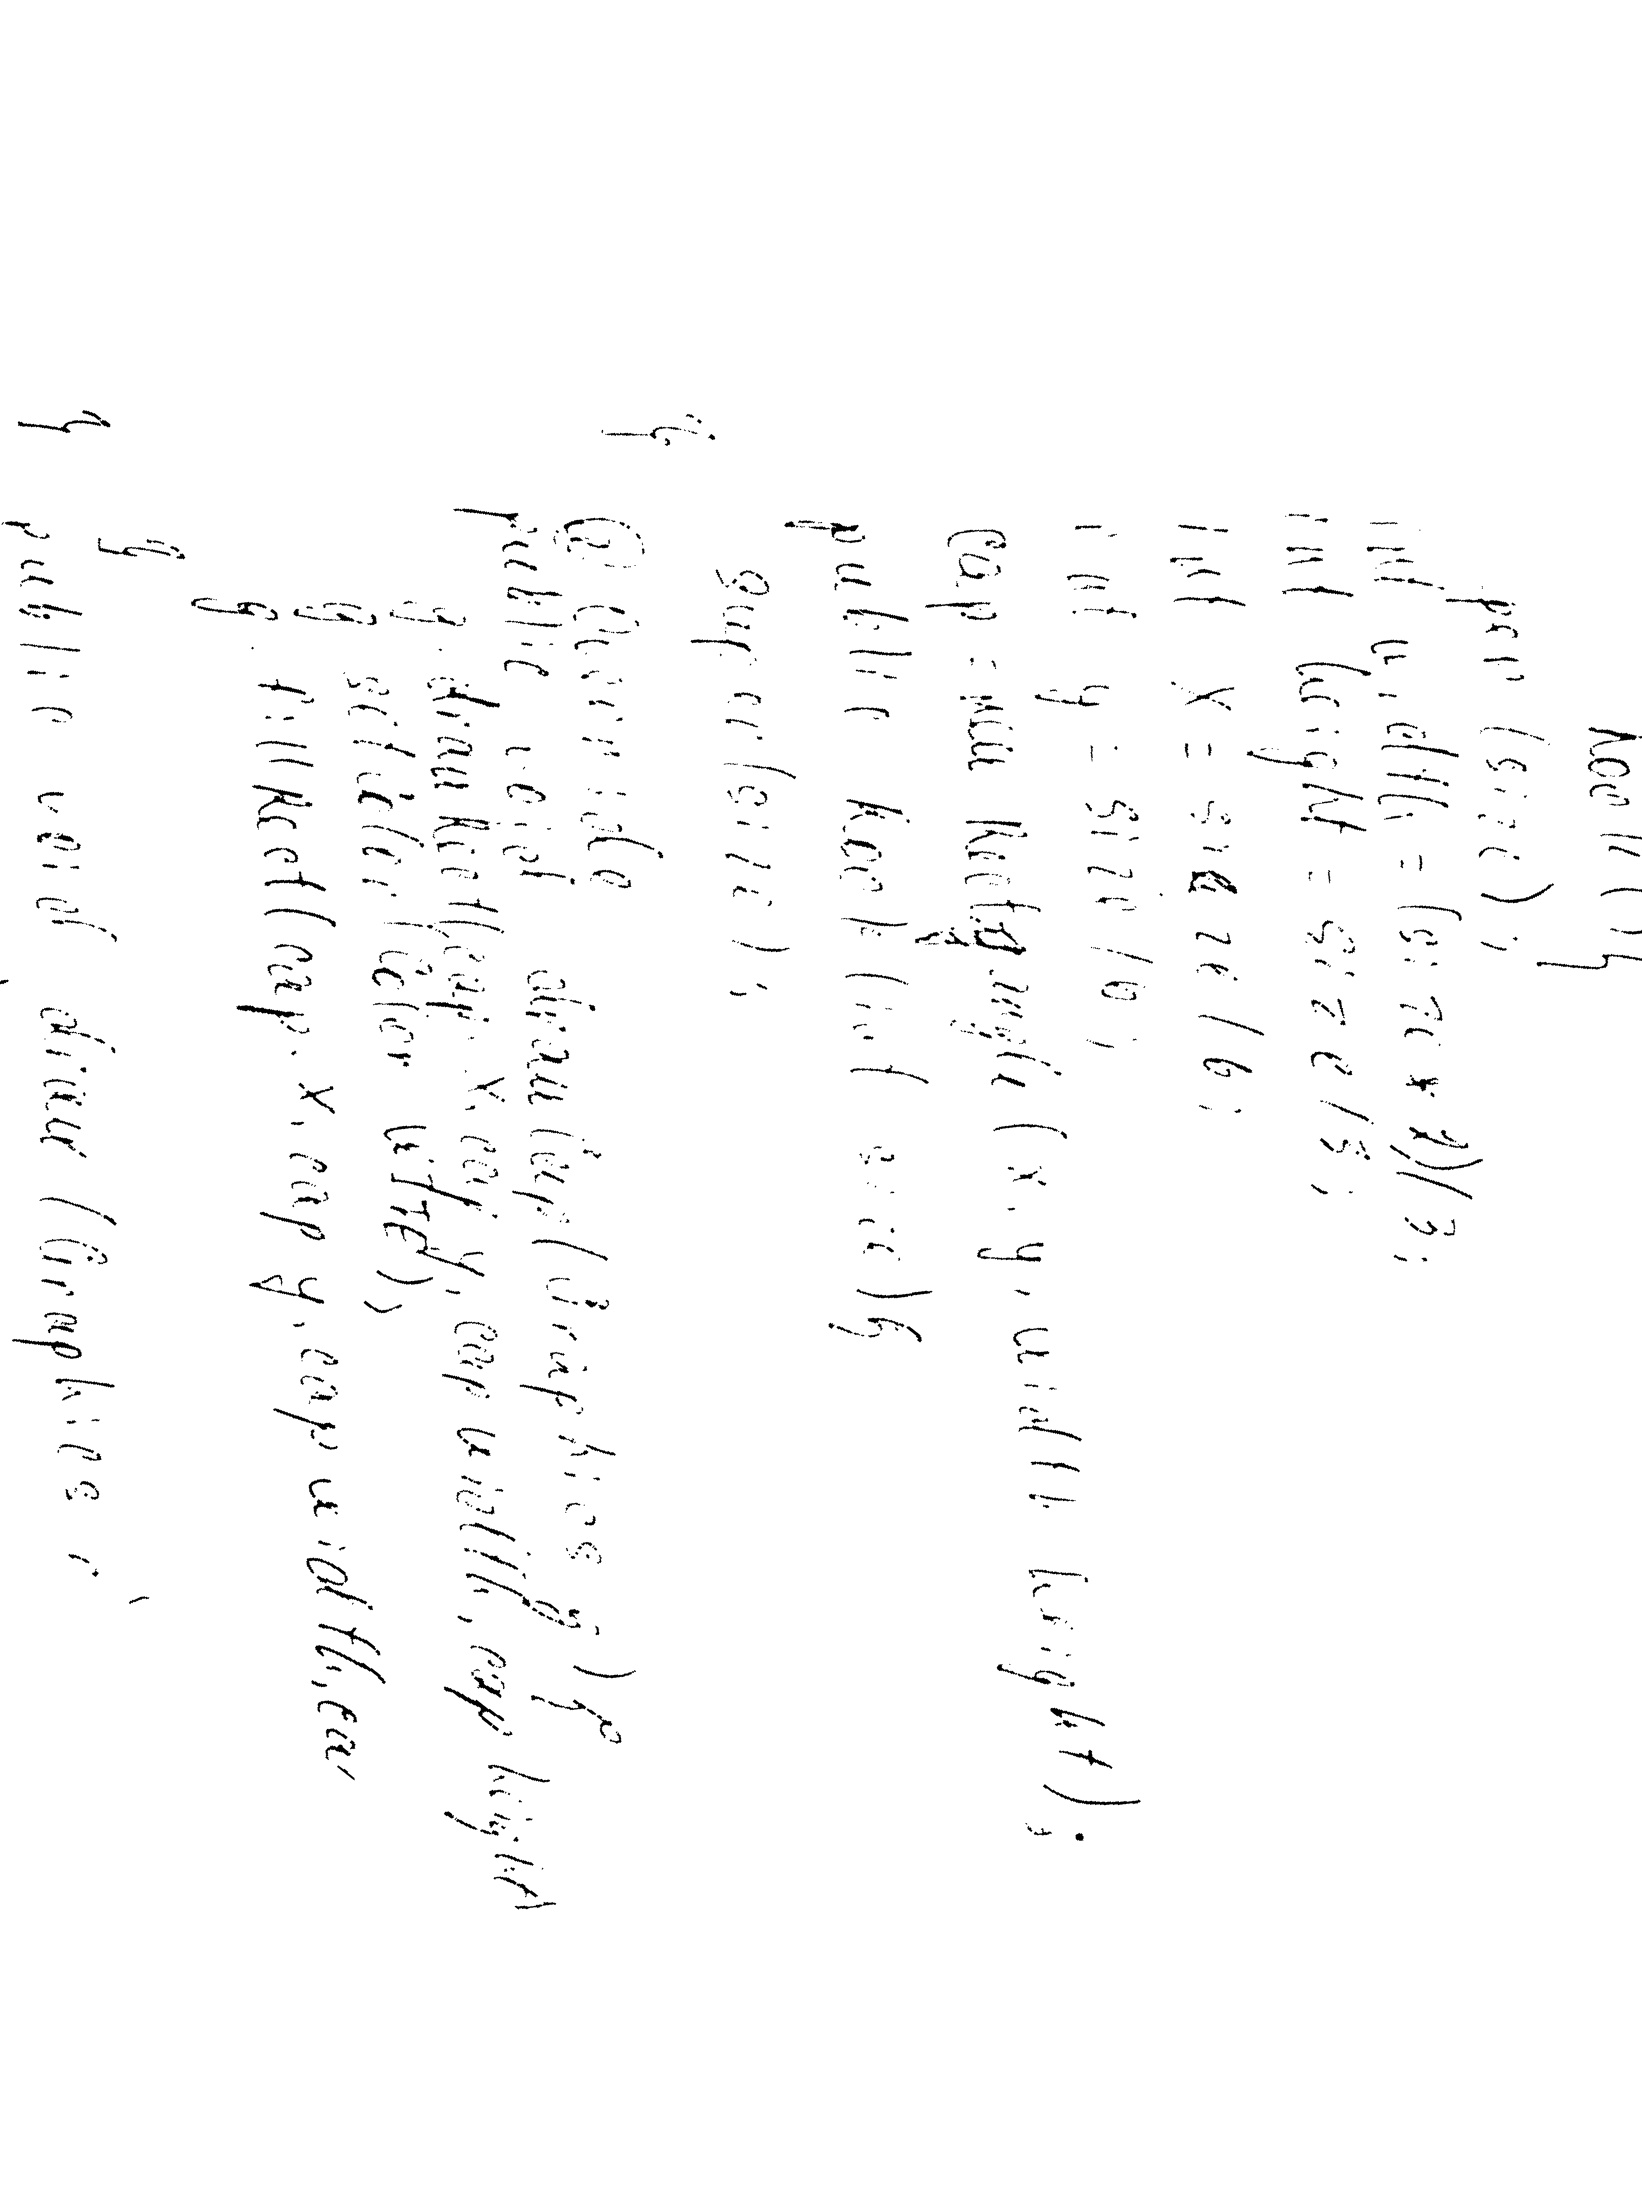 per (size);
int width = (size * 2)/3;
int height = size/3;
int x = size/6;
int y = size/6;
cap = new Rectangle(x, y, width, height);
public (int size){
super(size);
}
@Override
public void drawCap(Graphics g){
g.drawRect(cap.x, cap.y, cap.width, cap.height
g.setColor(Color.WHITE);
g.fillRect(cap.x, cap.y, cap.width,
}
}
public void draw (Graphics